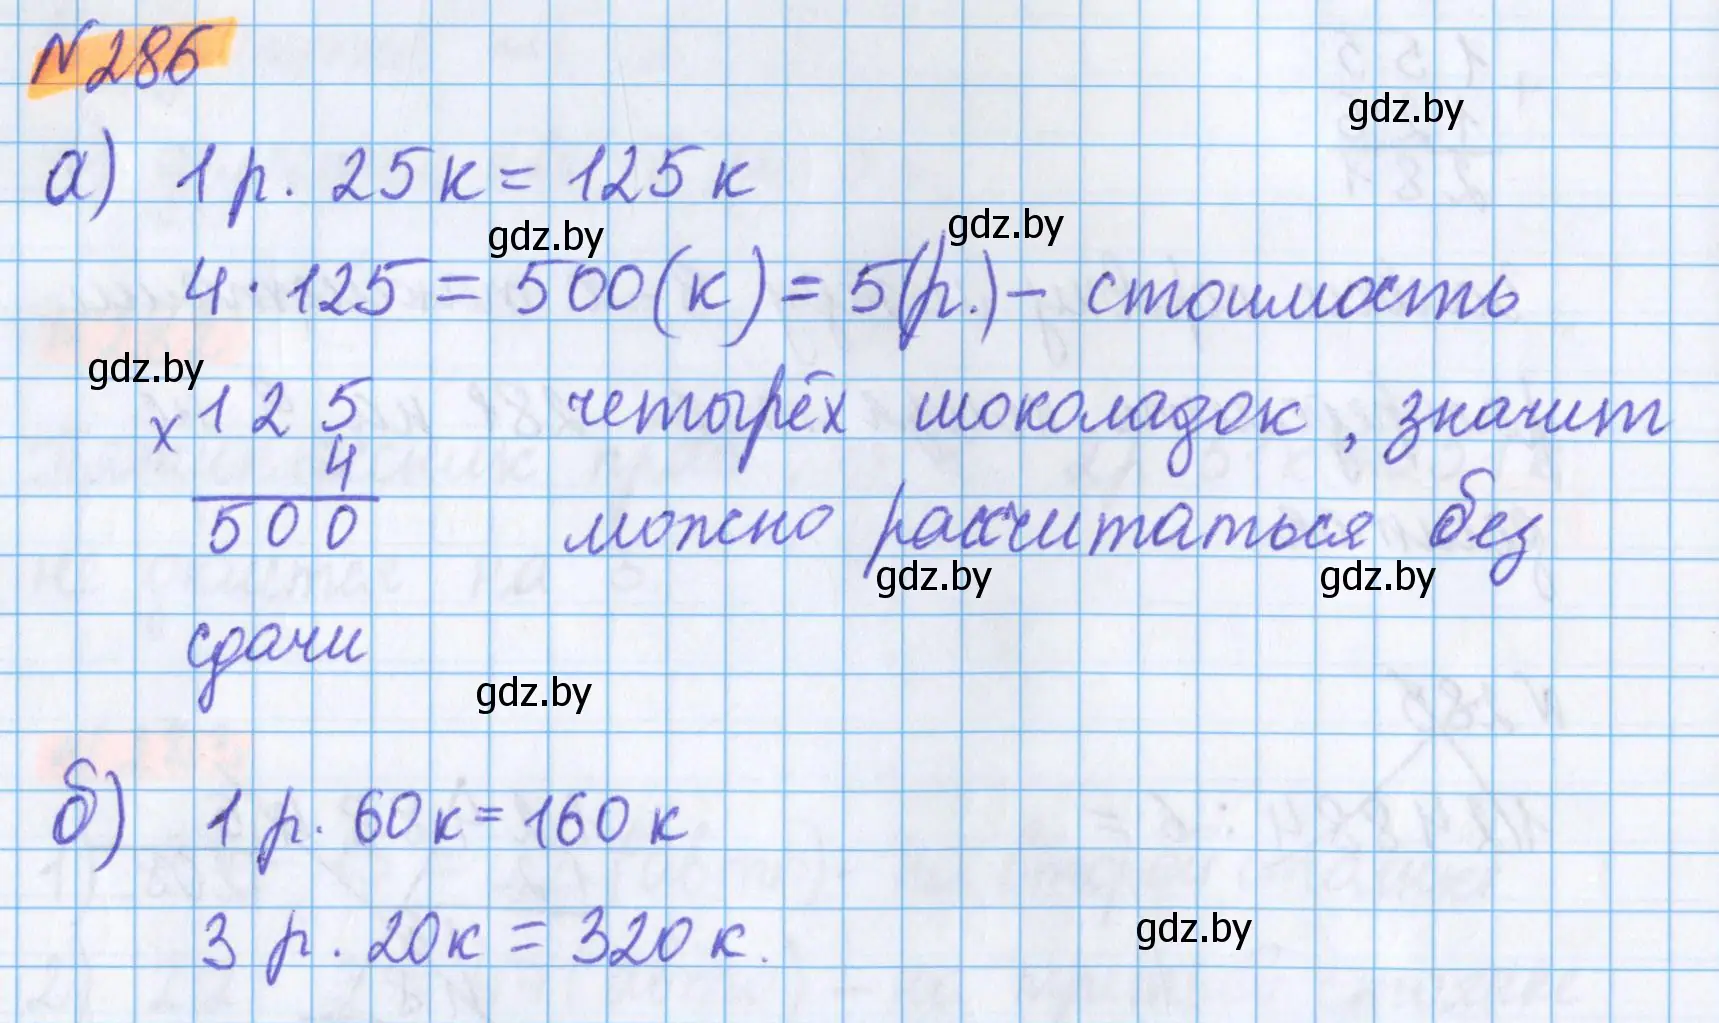 №286
gdz.by
а) 1 р. 25 к = 125 к
gdz.by gdz.by
4 · 125 = 500 (к) = 5 (р.) – стоимость
gdz.by
х 125 четырёх шоколадок, значит
4
500 можно рассчитаться без
gdz.by gdz.by
сдачи
gdz.by
б) 1 р. 60 к = 160 к
3 р. 20 к = 320 к.
gdz.by